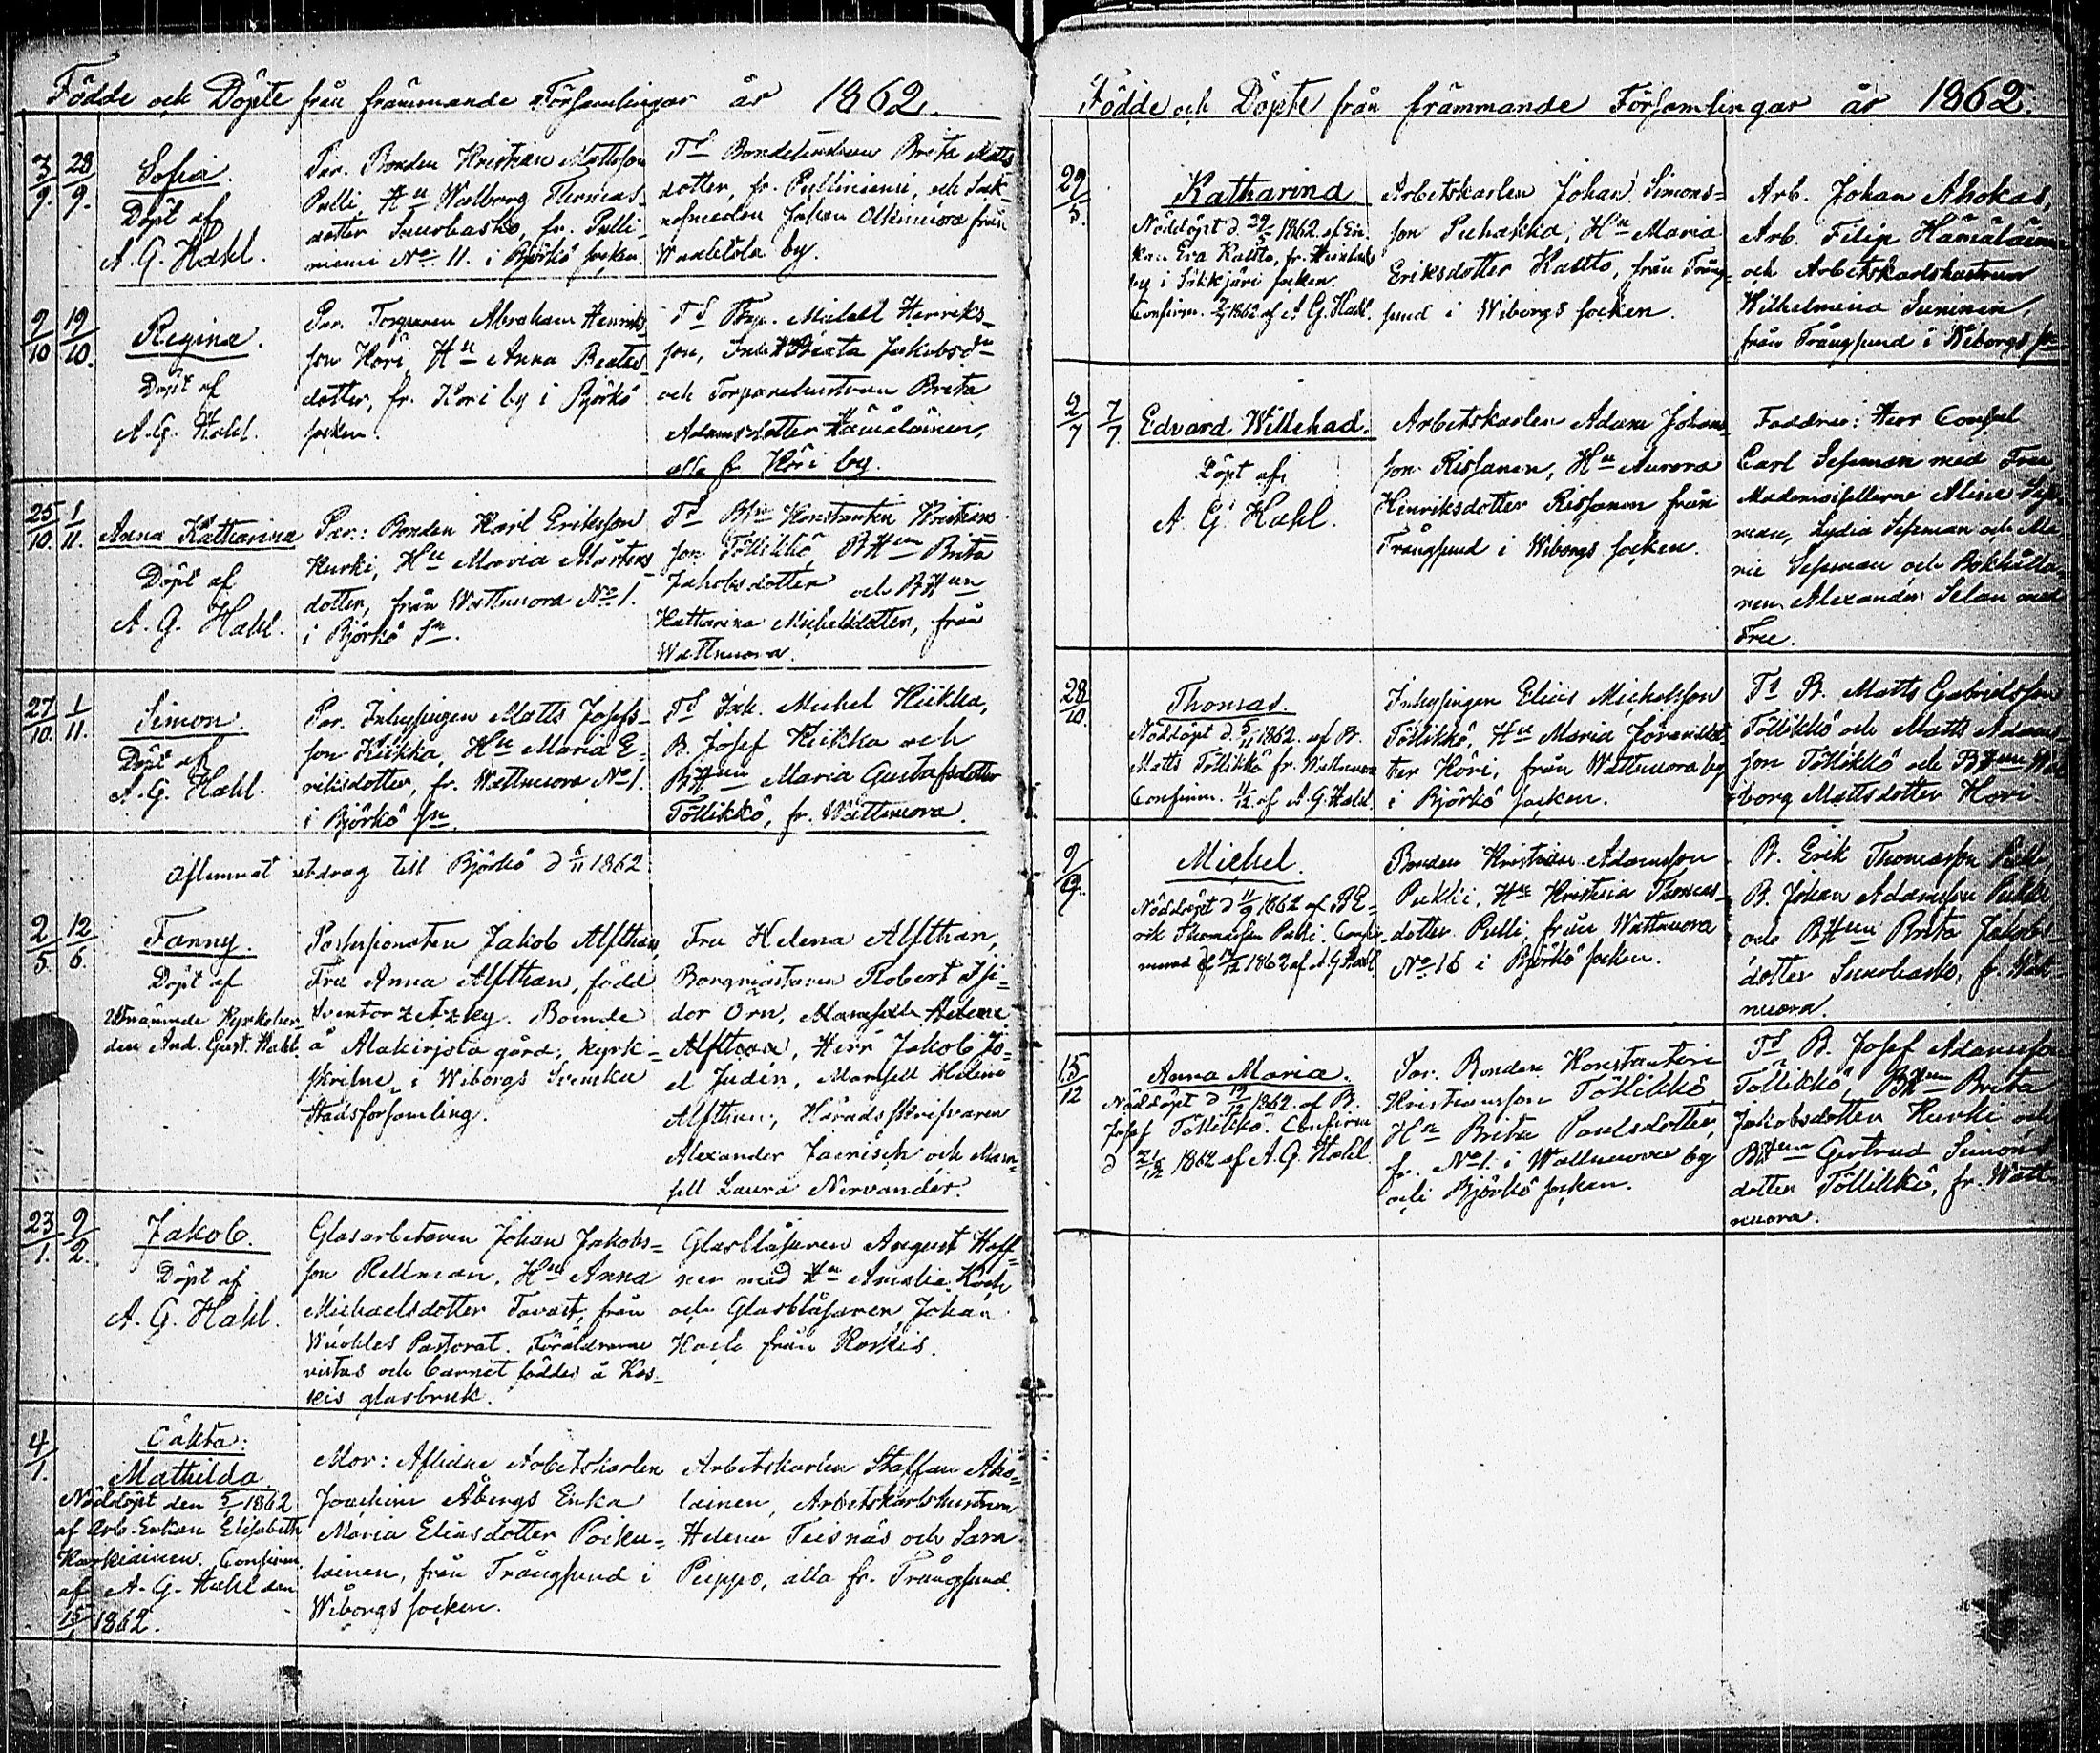 Födde och Döpte från främmande Församlingar år 1862.
3/9. 28/9.
Sofia.
Döpt af
A. G. Hahl.
Par. Bonden Kristian Mattsson
Pulli Hu Walborg Thomas-
dotter Suurhasko, fr. Pulli-
niemi No 11. i Björkö socken.
Ts Bondehustrun Brita Matts
dotter, fr. Pulliniemi, och
Johan Olkinuora från
by.
9/10 19/10.
Regina.
Döpt af
A. G. Hahl.
Par. Torparen Abraham Henriks
son Höri Hu Anna Beata
dotter, fr. Höri by i Björkö
socken.
Ts Henriks-
son, Beata Jakobsdr
och Torparehustrun Brita
Adamsdotter Hämäläinen,
alla fr Höri by.
25/10. 1/11.
Anna Katharina
Döpt af
A. G. Hahl.
Par.: Bonden Karl Eriksson
Kurki, Hu Maria Mårtens-
dotter, från Wattnuora No 1.
i Björkö Sn.
Ts Bn Konstantin Kristians
son Töllikkö BHun Brita
Jakobsdotter och BHun
Katharina Michelsdotter, från
Wattnuora.
27/10. 1/11.
Simon.
Döpt af
A. G. Hahl.
Par. Inhysingen Matts Josefs-
son Kiikka, Hu Maria E-
riksdotter, fr. Wattnuora No 1.
i Björkö sn.
Ts Michel Kiikka,
B. Josef Kiikka och
BHun Maria Gustafsdotter
Töllikkö, fr. Wattnuora.
Aflemnat utdrag till Björkö d 1862
2/5. 12/6.
Fanny.
Döpt af
Kyrkoher-
den And. Gust. Hahl.
Possessionaten Jakob Alfthan,
Fru Anna Alfthan, född
Sventorzetzky. Boende
å Alakirjola gård, kyrk-
skrifne i Wiborgs Svenska
Stadsförsamling.
Fru Helena Alfthan,
Borgmästaren Robert Isi-
dor Örn, Mamsell Helene
Alfthan, Herr Jakob Jo-
el Judén, Mamsell Helene
Alfthan, Häradsskrifvaren
Alexander Jaenisch och Mam-
sell Laura Nervander.
23/1. 9/2.
Jakob.
Döpt af
A. G. Hahl.
Glasarbetaren Johan Jakobs-
son Rellman, Hu Anna
Michaelsdotter Tavast, från
Pastorat. Föräldrarne
vistas och barnet föddes å Kos-
kis glasbruk.
Glasblåsaren August Haff-
ner med Hu Amalie Koch
och Glasblåsaren Johan
från Koskis.
4/1.
Oäkta:
Mathilda
Nöddöpt den 5/1 1862
af Arb. Enkan Elisabeth
Karkiainen. Confirm.
af A. G. Hahl den
15/1 1862.
Mor: Aflidne Arbetskarlen
Joachim Åbergs Enka
Maria Eliasdotter Poiku-
lainen, från Trångsund i
Wiborgs socken.
Arbetskarlen Staffan Aho-
lainen, Arbetskarlshustrun
Helena Teisnäs och Sara
Peippo, alla fr. Trångsund.
Födde och Döpte från främmande Församlingar år 1862.
29/5.
Katharina
Nöddöpt d. 29/5 1862. af En-
kan Eva Kattto, fr.
by i Säkkjärvi socken.
Confirm. 1862 af A G. Hahl.
Arbetskarlen Johan Simons-
son Puhakka, Hu Maria
Eriksdotter Kattto, från Trång-
sund i Wiborgs socken.
Arb. Johan Ahokas,
Arb. Filip Hämäläinen
och Arbetskarlshustrun
Wilhelmina Suninen,
från Trångsund i Wiborgs sn
2/7 7/7
Edvard Willehad.
Döpt af
A. G. Hahl.
Arbetskarlen Adam Johans-
son Rissanen, Hu Aurora
Henriksdotter Rissanen från
Trångsund i Wiborgs socken.
Faddrar: Herr Consul
Carl Sesseman med Fru
Mademoisellerne Aline Sesse-
man, Lydia Sesseman och Ma-
rie Sesseman och Bokhålla-
ren Alexander Selan med
Fru.
28/10.
Thomas.
Nöddöpt d. 5/11 1862. af B.
Matts Töllikkö fr. Wattnuora
Confirm. 11/12 af A. G. Hahl.
Inhysingen Elias Michelsson
Töllikkö, Hu Maria
ter Höri, från Wattnuora by
i Björkö socken.
Ts B. Matts Gabrielsson
Töllikkö och Matts Adams-
son Töllikkö och BHun Wal
borg Mattsdotter Hovi.
9/9.
Michel.
Nöddöpt d 11/9 1862 af B E-
rik Thomasson Pulli. Confir-
1862 af A. G. Hahl
Bonden Kristian Adamsson
Pukki, Hu Kristina Thomas-
dotter Pulli, från Wattnuora
No 16 i Björkö socken.
B. Erik Thomasson Pulli,
B. Johan Adamsson Pukki
och BHun Brita Jakobs-
dotter Suurhasko, fr. Wat-
nuora.
15/12
Anna Maria.
Nöddöpt d 19/12 1862. af B.
Josef Töllikkö. Confirm
d 21/12 1862 af A. G. Hahl
Par. Bonden Konstantin
Kristiansson Töllikkö
Hu Brita Paulsdotter,
fr. No 1. i Wattnuora by
och Björkö socken.
Ts B. Josef Adamsson
Töllikkö, BHun Brita
Jakobsdotter Kurki och
BHun Gertrud Simons
dotter Töllikkö, fr. Watt-
nuora.